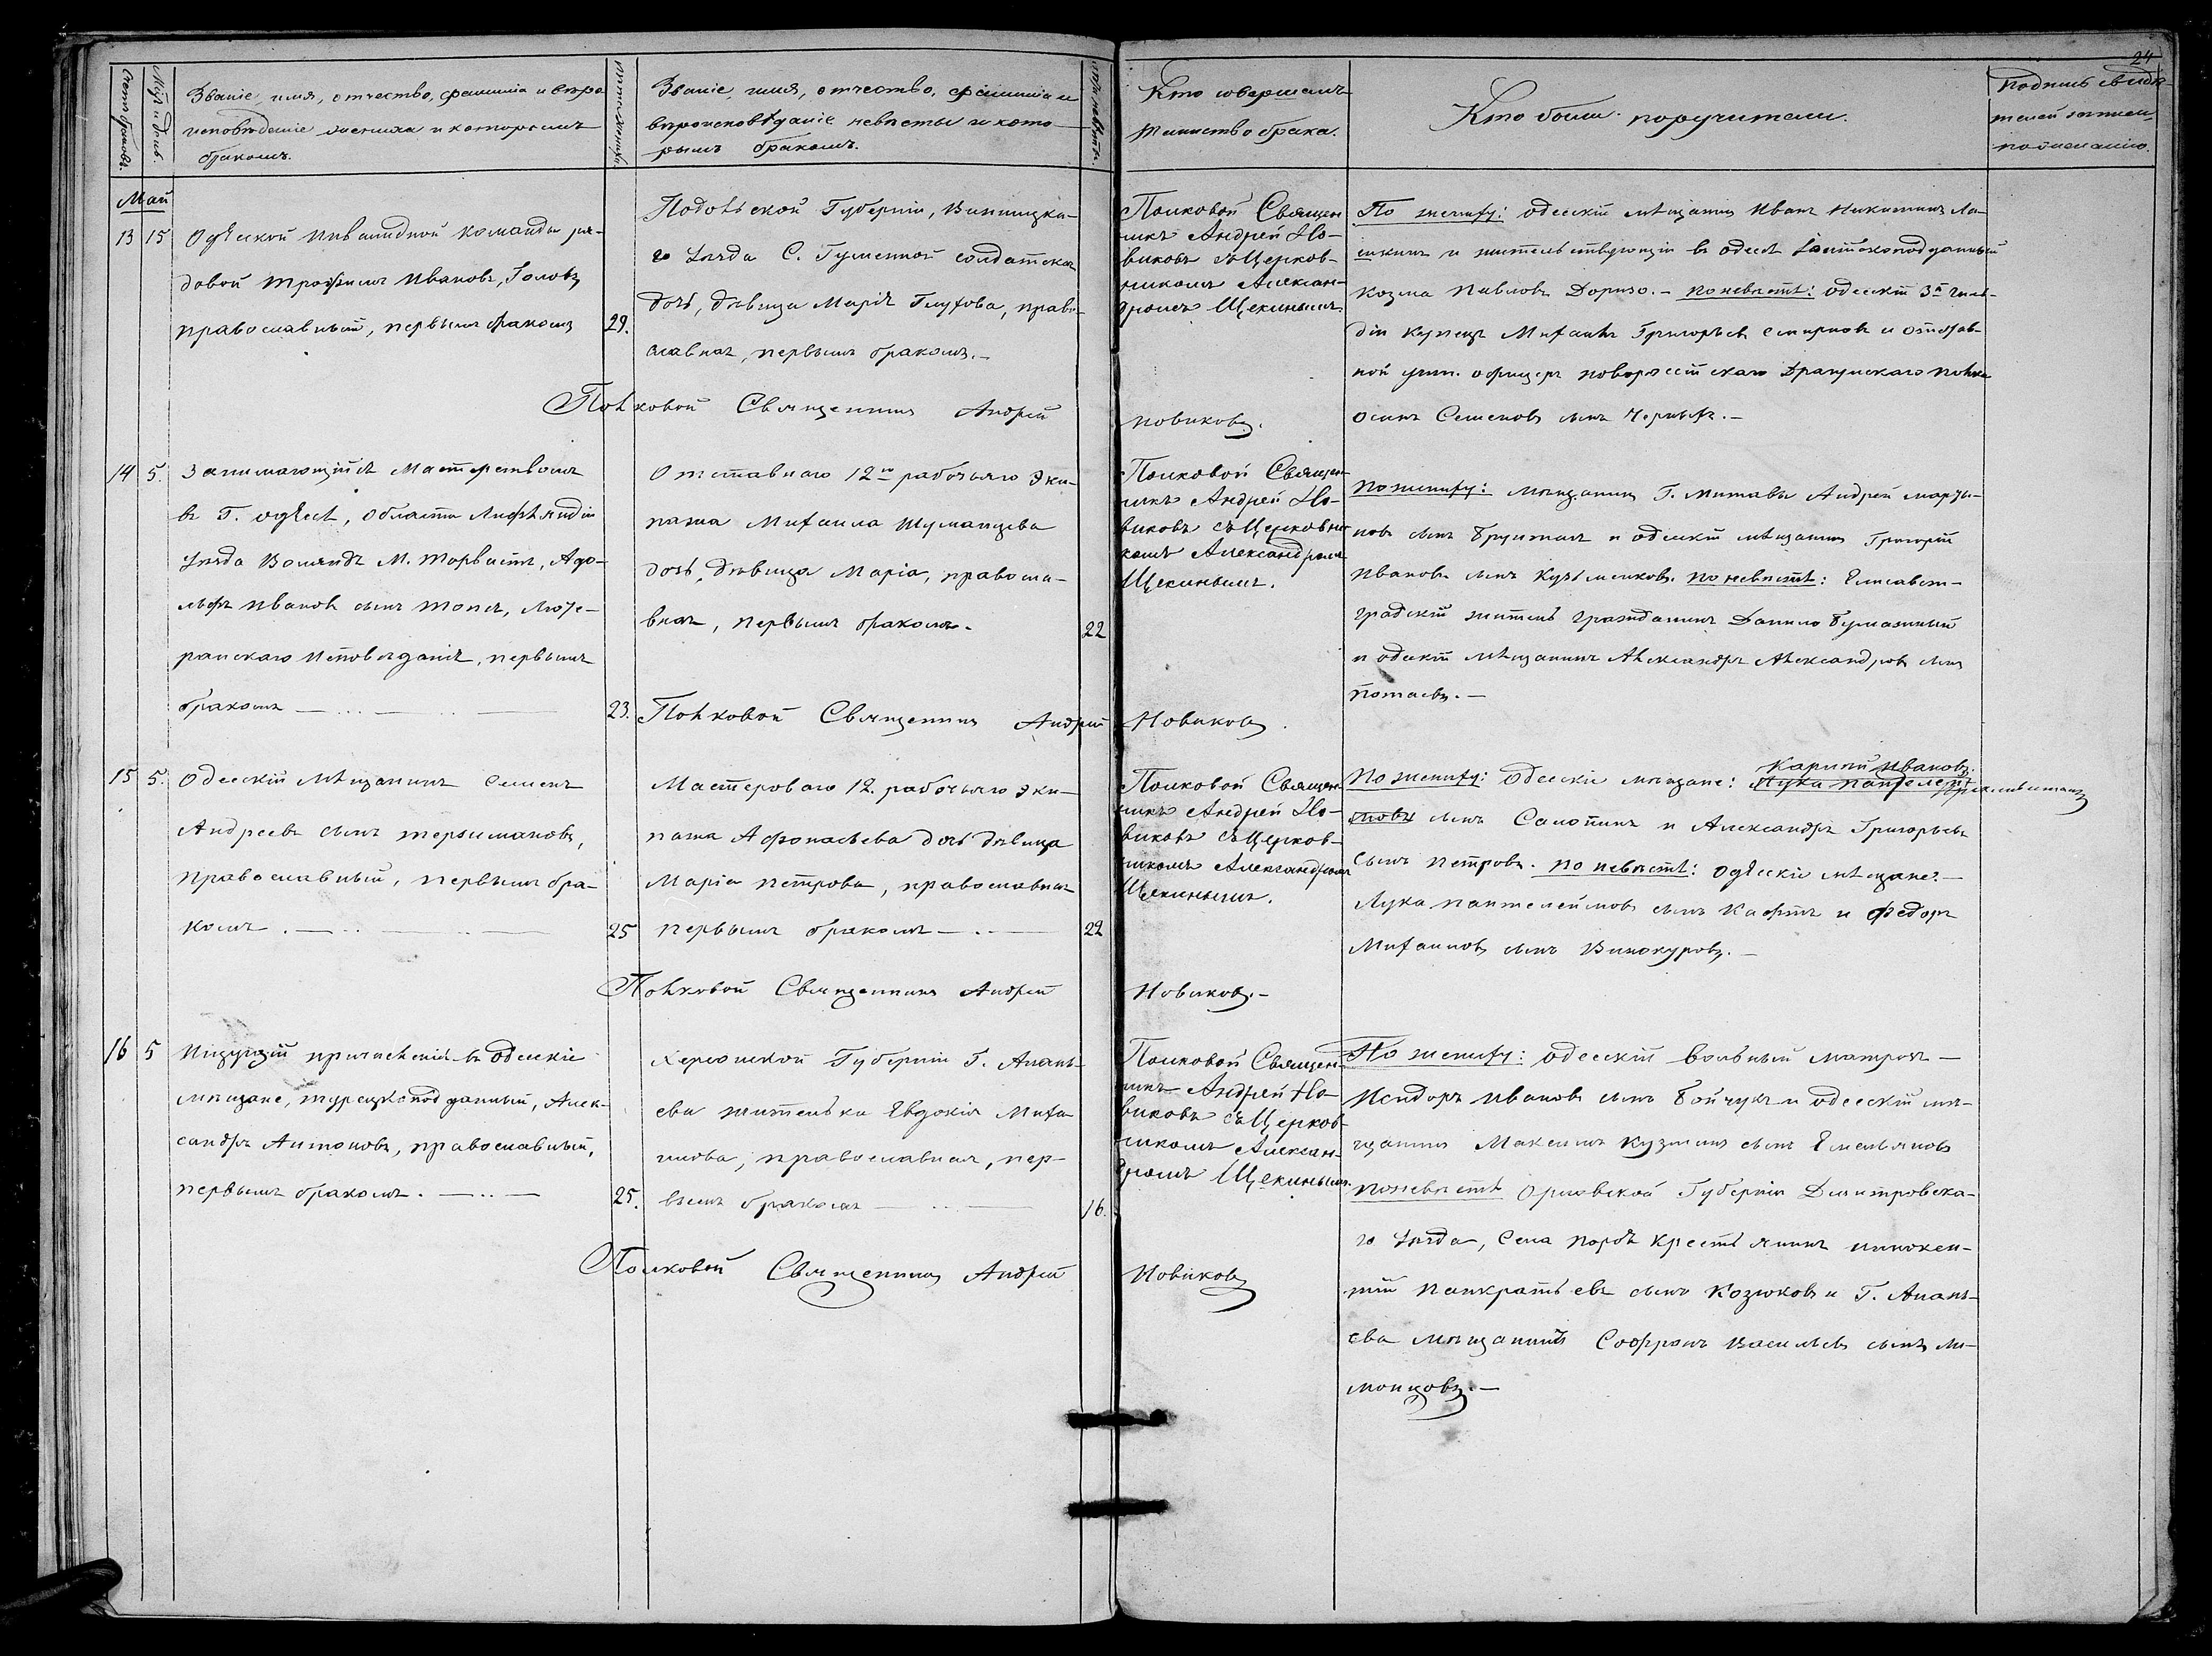 24
Счетъ браковъ.
Мѣс. и день.
Званіе, имя, отчество, фамилія и вѣро
исповѣданіе жениха и которымъ
бракомъ.
Лѣта жениха.
Званіе, имя, отчество, фамилія и
вѣроисповѣданіе невѣсты и кото-
рымъ бракомъ.
Лѣта невѣсты.
Кто совершалъ
таинство брака.
Кто были поручители.
Подпись свидѣ-
телей записи
по желанію.
Май
13 15
Одѣской инвалидной команды ря-
довой Трофимъ Ивановъ, Головъ
православный, первымъ бракомъ
29.
Подольской Губерніи, Винницка-
го уѣзда С. Гуменной солдатская
дочь, дѣвица Марія Глухова, право-
славная, первымъ бракомъ.—
Полковой Священ
никъ Андрей Но-
виковъ съ Церков-
никомъ Алексан-
дромъ Щекинымъ.
По жениху: одесскій мѣщанинъ Иванъ Никитинъ Ла-
и жительствующій въ одессѣ
Козма Павловъ Доризо.— по невѣстѣ: одесскій 3й гиль-
діи купецъ Михаилъ Григорьевъ Смирновъ и отстав-
ной унт. офицеръ Новорос. Драгунскаго полка
осипъ Семеновъ сынъ Черныхъ.—
Полковой Священникъ Андрей Новиковъ.
14 5.
Занимающійся мастерствомъ
въ Г. одѣссѣ, области Лифляндіи
уѣзда М. Торвастъ, Адо-
льфъ Ивановъ сынъ Томсъ, люте-
ранскаго исповѣданія, первымъ
бракомъ — ... —
23.
Отставнаго 12го рабочьяго эки-
пажа Михаила Шуманцева
дочь, дѣвица Марія, правосла-
вная, первымъ бракомъ.
22
Полковой Священ-
никъ Андрей Но-
виковъ съ Церковни
комъ Александромъ
Щекинымъ.
По жениху: мѣщанинъ Г. Митавы Андрей марты-
новъ сынъ и одескій мѣщанинъ Григорій
Ивановъ сынъ Кузьменковъ. по невѣстѣ: Елисавет-
градскій житель гражданинъ Данило Бумажный
и одескій мѣщанинъ Александръ Александровъ сынъ
Потаевъ.—
Полковой Священникъ Андрей Новиковъ.
15 5.
Одесскій мѣщанинъ Семенъ
Андреевъ сынъ Тержимановъ,
православный, первымъ бра-
комъ.
25
Мастероваго 12. рабочьяго эки-
пажа Афонасьева дочь дѣвица
Марія Петрова, православная
первымъ бракомъ —.—
22
Полковой Священ-
никъ Андрей Но-
виковъ съ Церков-
никомъ Александромъ
Щекинымъ.
Карпій Ивановъ
По жениху: Одесскіе мѣщане: Лука Пантелей-
мовъ сынъ Салотинъ и Александръ Григорьевъ
сынъ Петровъ. по невѣстѣ: одѣсскіе мѣщане:—
Лука Пантелеймовъ сынъ и Федоръ
Михаиловъ сынъ Винокуровъ.—
Полковой Священникъ Андрей Новиковъ.—
16 5
Ищущій причисленія въ одесскіе
мѣщане, турецкоподданный, Алек-
сандръ Антоновъ, православный,
первымъ бракомъ. —..—
25.
Херсонской Губерніи Г. Анань-
ева жителька Евдокія Миха
илова, православная, пер-
вымъ бракомъ — .. —
16.
Полковой Священ-
никъ Андрей Но
виковъ съ Церков-
никомъ Алексан-
дромъ Щекинымъ.
По жениху: одесскій вольный матрозъ —
Исидоръ Ивановъ сынъ Бойчукъ и одесскій мѣ-
щанинъ Максимъ Кузминъ сынъ Емельяновъ
по невѣстѣ Орловской Губерніи Дмитровска-
го уѣзда, села крестьянинъ инокен-
тій Панкратьевъ сынъ Козюковъ и Г. Анань-
ева мѣщанинъ Софронъ Васильевъ сынъ Ли-
монцовъ.—
Полковой Священникъ Андрей Новиковъ